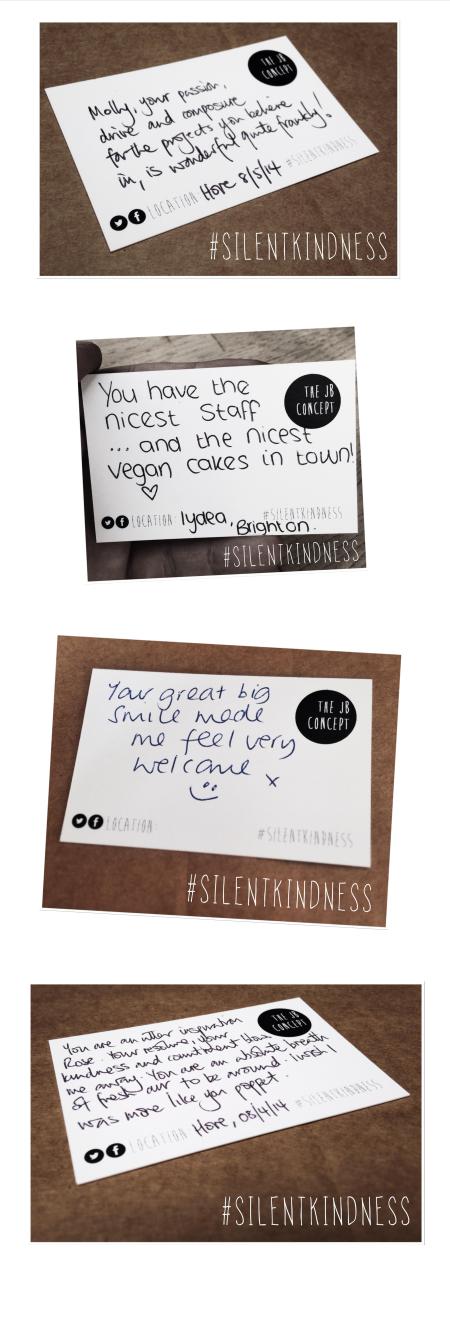 THE JB
CONCEPT
Molly, your passion,
drive and composure
for the projects you believe
in, is wonderful quite frankly!
LOCATION Hove 8/5/14 #SILENTKINDNESS
#SILENTKINDNESS
You have the
nicest Staff
... and the nicest
vegan cakes in town!
THE JB
CONCEPT
LOCATION: lydea, Brighton. #SILENTKINDNESS
#SILENTKINDNESS
Your great big
smile made
me feel very
welcome x
THE JB
CONCEPT
LOCATION: #SILENTKINDNESS
#SILENTKINDNESS
THE JB
CONCEPT
You are an utter inspiration
Rose. Your resolve, your
kindness and commitment blow
me away. You are an absolute breath
of fresh air to be around. I wish I
was more like you poppet.
LOCATION Hove, 08/4/14 #SILENTKINDNESS
#SILENTKINDNESS